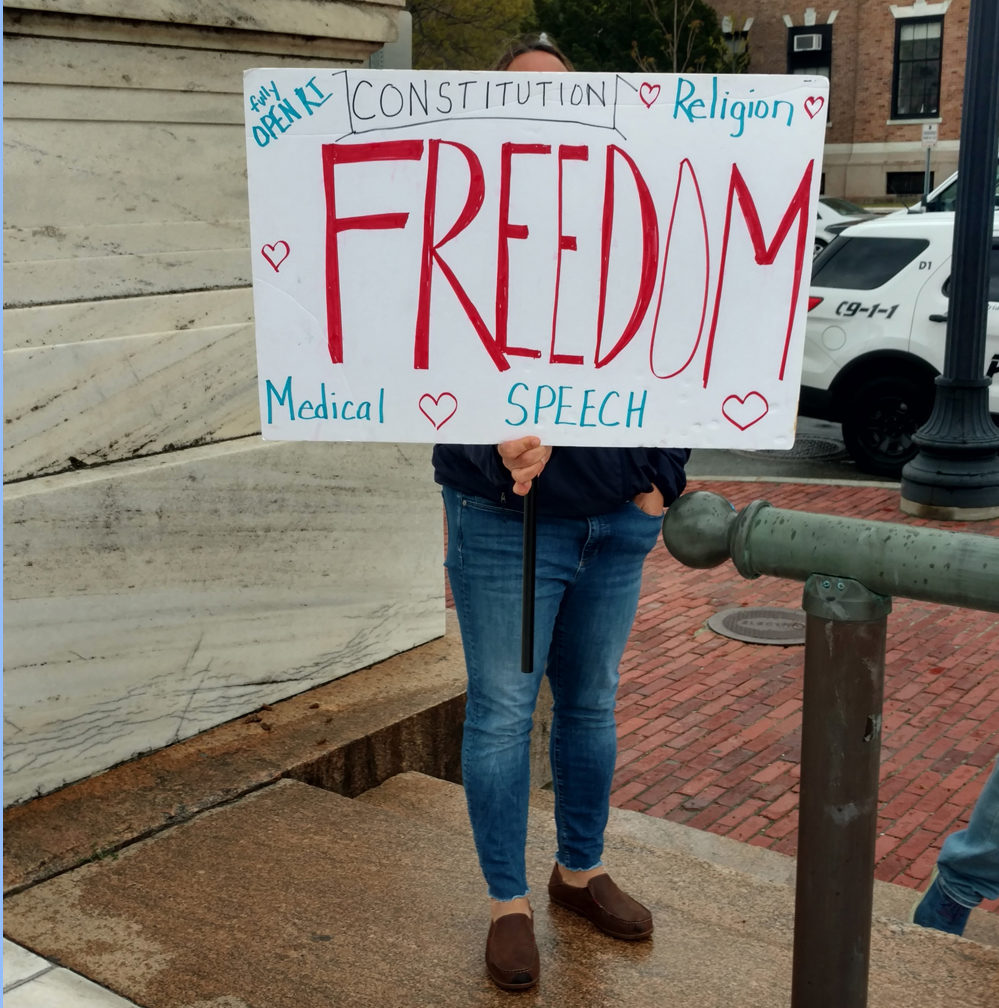 fully
OPEN RI
CONSTITUTION
Religion
FREEDOM
Medical
SPEECH
D1
9-1-1